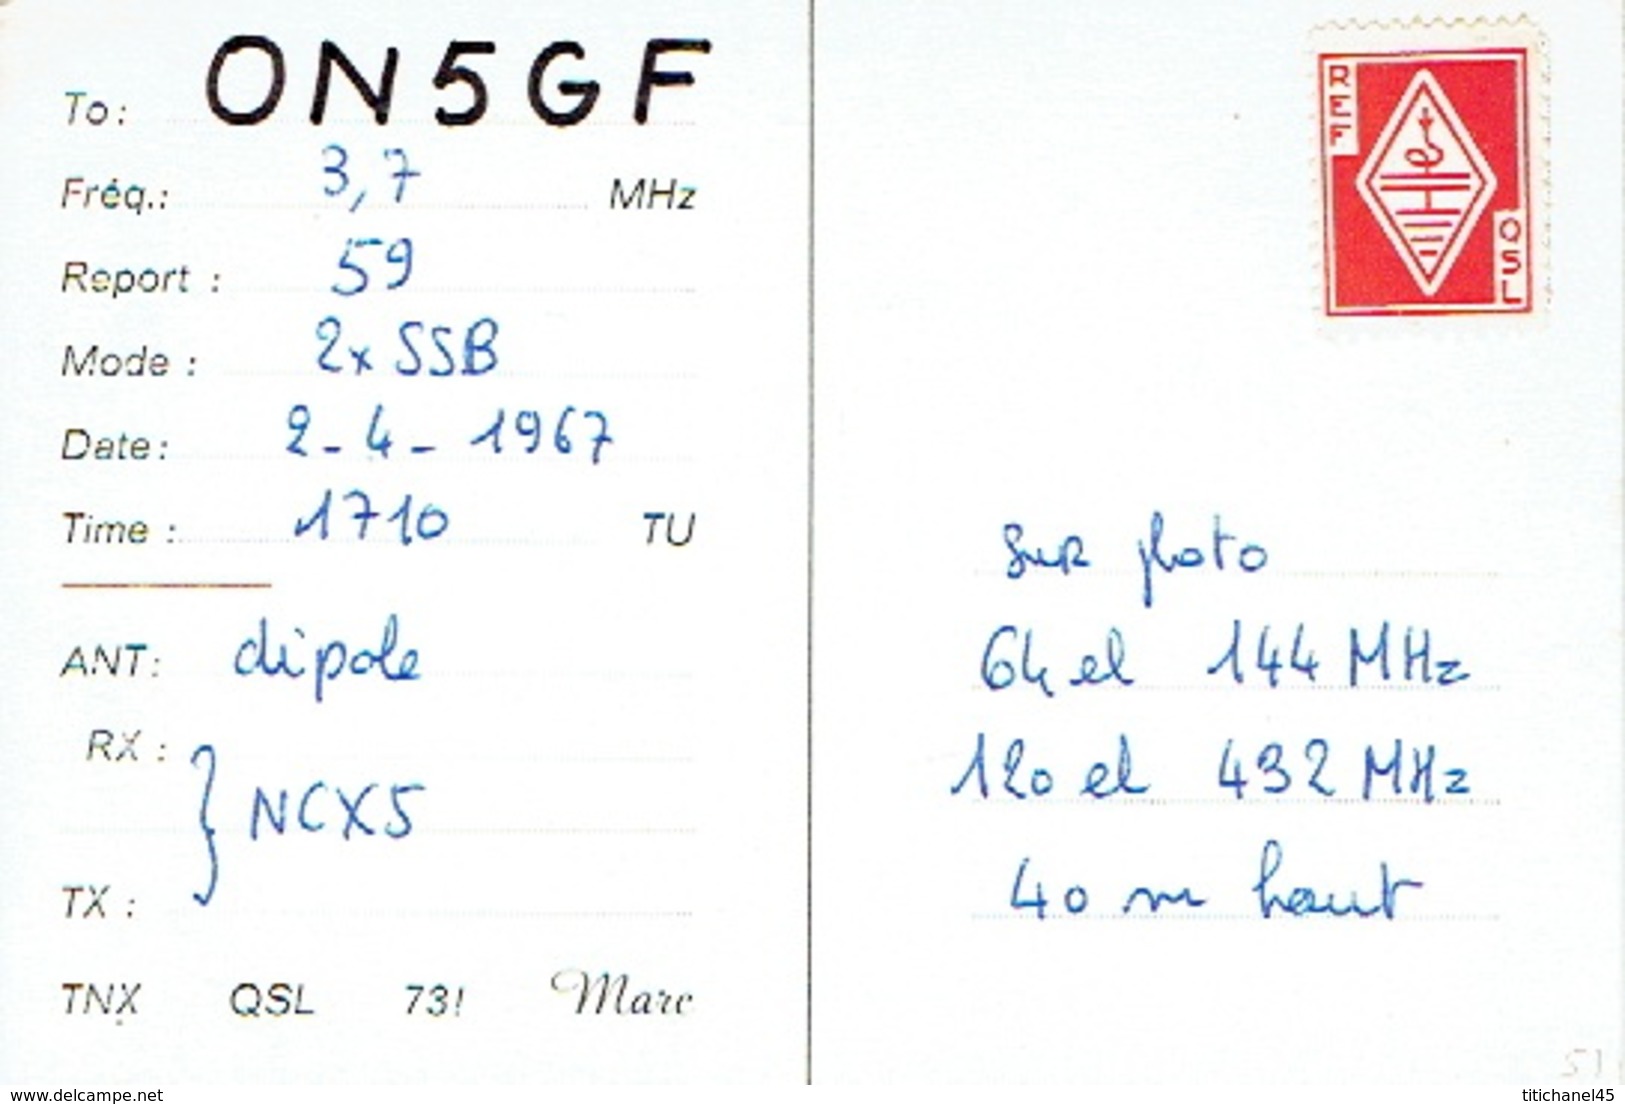 To: ON5GF
Fréq.: 3,7 MHz
Report : 59
Mode : 2x SSB
Date: 2-4-1967
Time : 1710 TU
ANT: dipole
RX :
} NCX5
TX :
TNX QSL 73! Marc
REF
QSL
Sur photo
64 el 144 MHz
120 el 432 MHz
40 m haut
51
www.delcampe.net
titichanel45